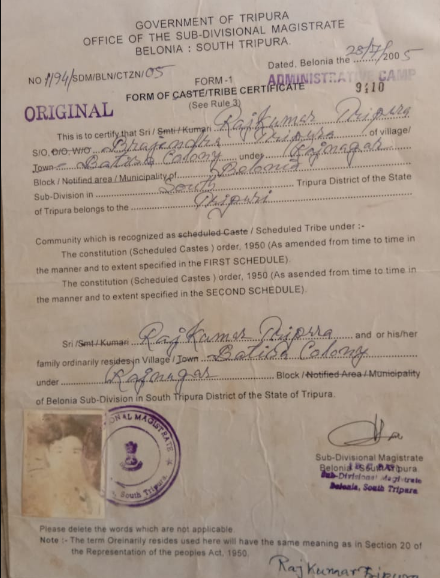 GOVERNMENT OF TRIPURA
OFFICE OF THE SUB-DIVISIONAL MAGISTRATE
BELONIA : SOUTH TRIPURA.
Dated, Belonia the 28/7/2005
NO 1194/SDM/BLN/CTZN/05
FORM -1
ADMINISTRATIVE CAMP
ORIGINAL
FORM OF CASTE/TRIBE CERTIFICATE
9110
(See Rule 3)
This is to certify that Sri / Smti / Kumari Rajkumar Tripura
S/O, D/O, W/O Tripura of village/
Town Batisa Colony under Rajnagar
Block / Notified area / Municipality of Belonia
Sub-Division in South Tripura District of the State
of Tripura belongs to the Tripuri
Community which is recognized as scheduled Caste / Scheduled Tribe under :-
The constitution (Scheduled Castes ) order, 1950 (As amended from time to time in
the manner and to extent specified in the FIRST SCHEDULE).
The constitution (Scheduled Castes ) order, 1950 (As amended from time to time in
the manner and to extent specified in the SECOND SCHEDULE).
Sri /Smt / Kumari Rajkumar Tripura and or his/her
family ordinarily resides in Village / Town Batisa Colony
under Rajnagar Block / Notified Area / Municipality
of Belonia Sub-Division in South Tripura District of the State of Tripura.
MAGISTRATE
South Tripura
Sub-Divisional Magistrate
Belonia, South Tripura.
Sub-Divisional Magistrate
Belonia, South Tripura
Please delete the words which are not applicable
Note :- The term Oreinarily resides used here will have the same meaning as in Section 20 of
the Representation of the peoples Act, 1950.
Rajkumar Tripura